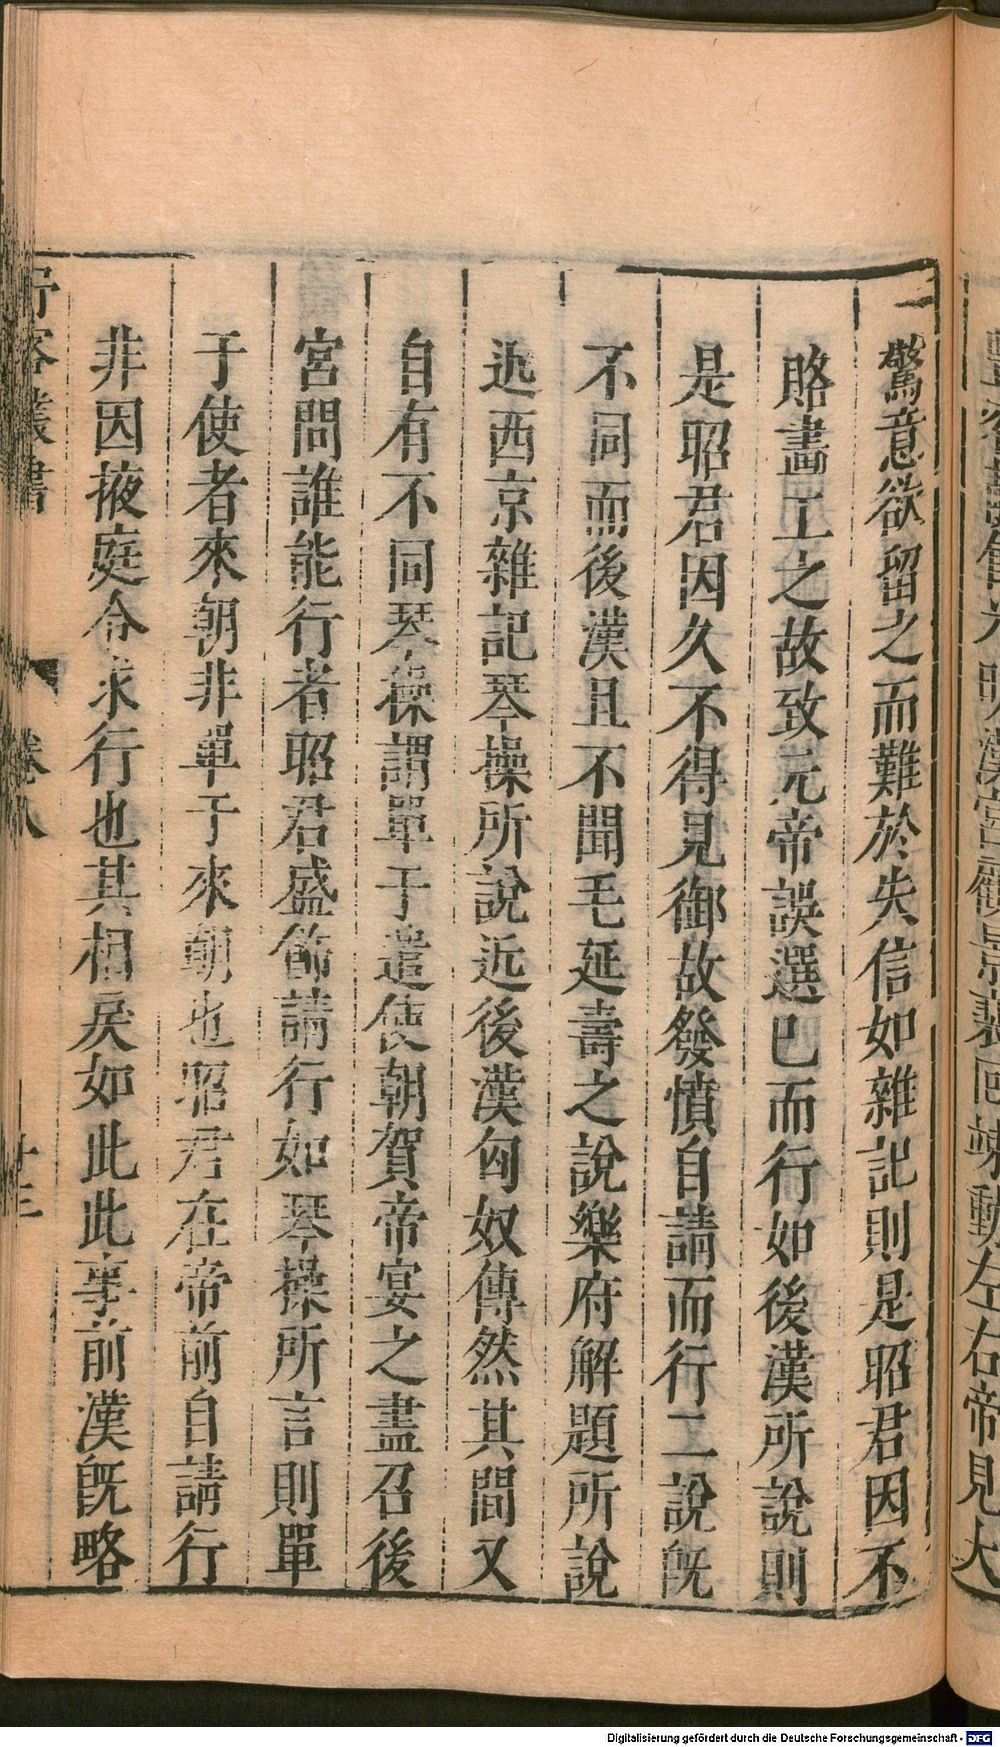 豐容靚飾光明漢宮顧景裴回竦動左右帝見大
驚意欲留之而難於失信如雜記則是昭君因不
賂畫工之故致元帝誤選已而行如後漢所說則
是昭君因久不得見御故發憤自請而行二說旣
不同而後漢且不聞毛延壽之說樂府解題所說
近西京雜記琴操所說近後漢匈奴傳然其間又
自有不同琴操謂單于遣使朝賀帝宴之盡召後
宮問誰能行者昭君盛飾請行如琴操所言則單
于使者來朝非單于來朝也昭君在帝前自請行
非因掖庭令求行也其相戾如此此事前漢旣略
野客叢書
卷八
十三
Digitalisierung gefördert durch die Deutsche Forschungsgemeinschaft - DFG